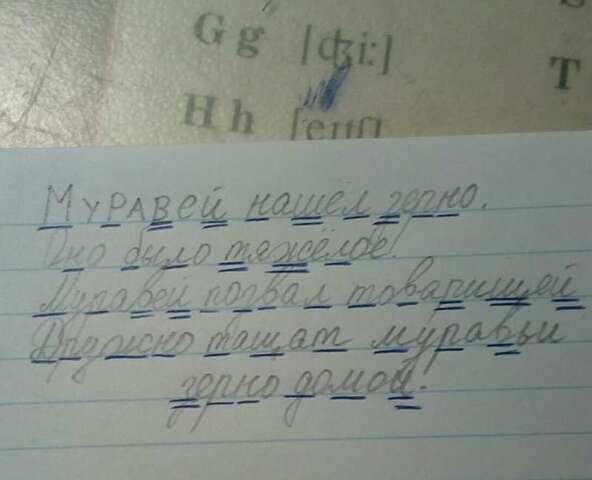 G g [ʤi:]
H h [eitʃ]
T
Муравей нашёл зерно.
Оно было тяжёлое!
Муравей позвал товарищей
Дружно тащат муравьи
зерно домой!